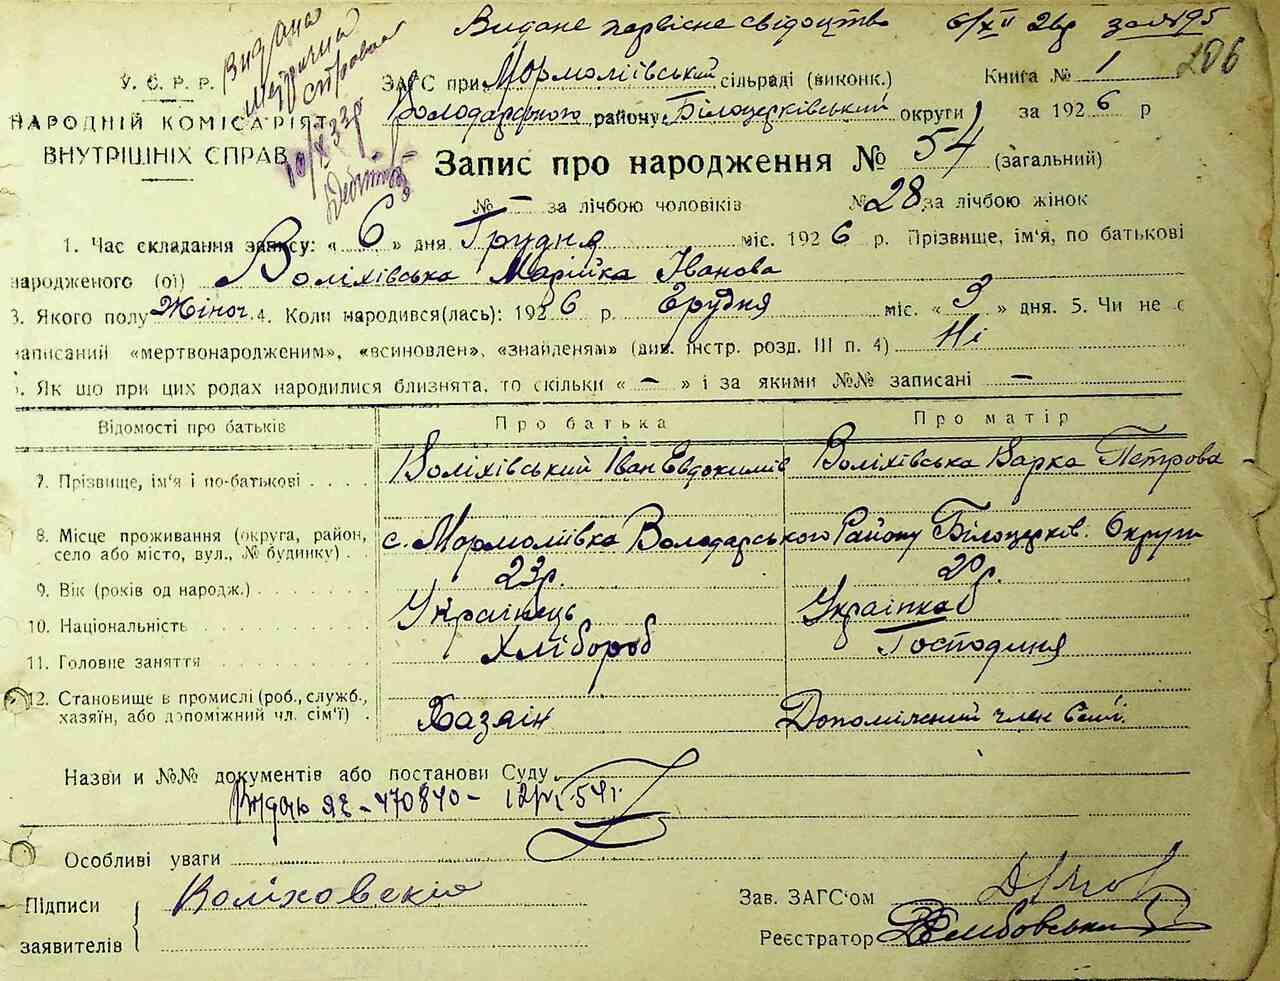 Видане первісне свідоцтво 6/XII 26р за №95
206
Видана
метрична
10/X 33р
У. С. Р. Р.
НАРОДНІЙ КОМІСАРІЯТ
ВНУТРІШНІХ СПРАВ
ЗАГС при Мормоліївський сільраді (виконк.) Книга № 1
Володарського району Білоцерківський округи за 1926 р
Запис про народження № 54 (загальний)
№ – за лічбою чоловіків № 28 за лічбою жінок
1. Час складання запису: « 6 » дня Грудня міс. 1926 р. Прізвище, ім'я, по батькові
народженого (ої) Воліхівська Марійка Іванова
3. Якого полу Жіноч. 4. Коли народився(лась): 1926 р. Грудня міс. « 3 » дня. 5. Чи не є
записаний «мертвонародженим», «всиновлен», «знайденям» (див. інстр. розд. III п. 4) Ні
. Як що при цих родах народилися близнята, то скільки « – » і за якими №№ записані –
Відомості про батьків Про батька Про матір
7. Прізвище, ім'я і по-батькові . . . . Воліхівський Іван Евдокимів Воліхівська Варка Петрова
8. Місце проживання (округа, район, село або місто, вул., № будинку) . с. Мормоліївка Володарського Району Білоцерків. Округи
9. Вік (років од народж.) 23р. 20р.
10. Національність Українець Українка
11. Головне заняття Хлібороб Господиня
12. Становище в промислі (роб., служб., хазяїн, або допоміжний чл. сім'ї) . Хазяін Допоміжний член Семї.
Назви и №№ документів або постанови Суду
470840 – 54г.
Особливі уваги
Підписи
заявителів
Воліховскія
Зав. ЗАГС'ом
Реєстратор